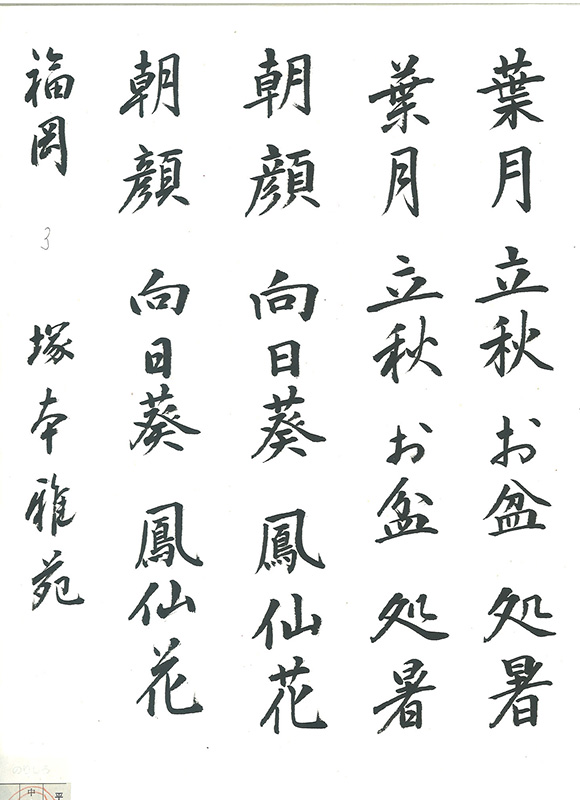 葉月 立秋 お盆 処暑
葉月 立秋 お盆 処暑
朝顔 向日葵 鳳仙花
朝顔 向日葵 鳳仙花
福岡 3 塚本雅苑
中
平